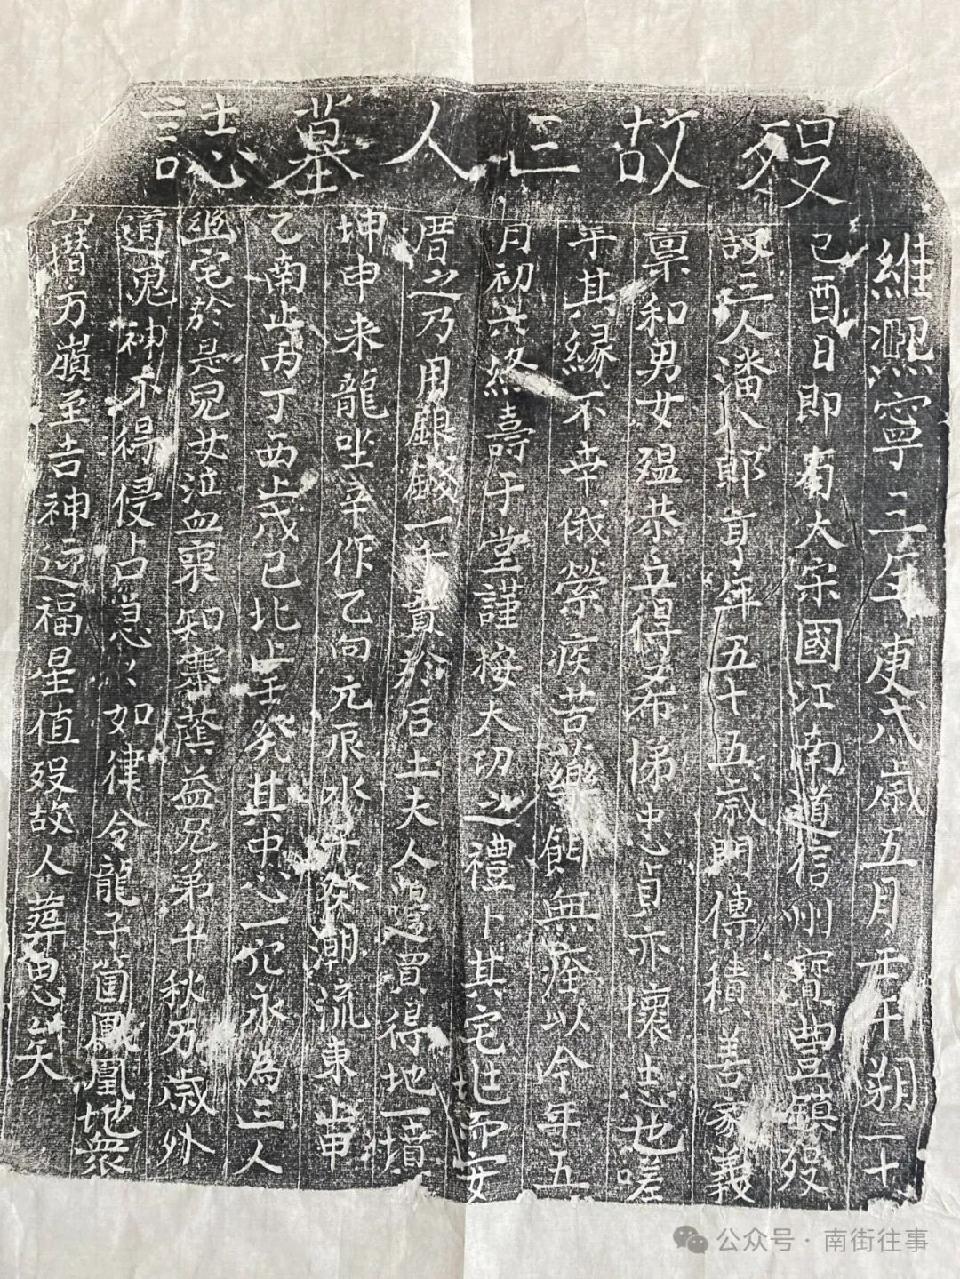 殁故亡人墓誌
維熙寧三年庚戌歲五月壬午朔二十
己酉日即有大宋國江南道信州寶豊鎮殁
故亡人潘八郎享年五十五歲門傳積善家義
禀和男女温恭立得希悌忠貞亦懷志也嗟
乎其緣不幸俄縈疾苦藥餌無痊以今年五
月初六終壽于堂謹按大功之禮卜其宅兆而安
厝之乃用銀錢一千貫於后土夫人邊買得地一墳
坤申来龍坐辛作乙向元辰水癸潮流東止甲
乙南止丙丁西止戊己北止壬癸其中心一穴永為亡人
幽宅於是兒女泣血衆知寨蔭益兄弟千秋万歲外
道鬼神不得侵占急々如律令龍子崗鳳凰地衆
山揩万嶺至吉神迎福星值殁故人葬思矣
公众号·南街往事